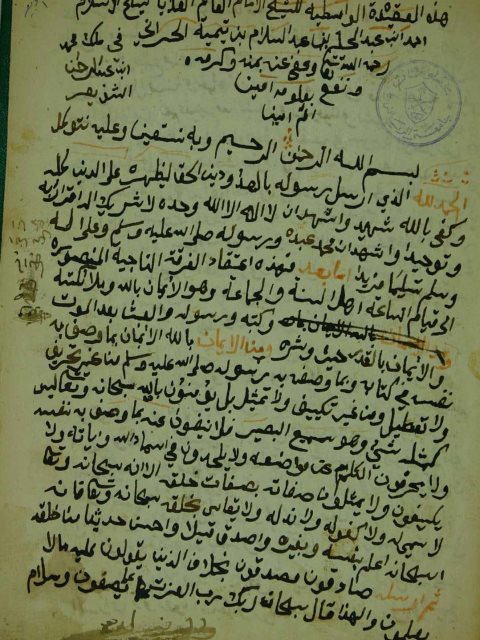 هذه العقيدة الواسطية للشيخ الامام العالم العلامة شيخ الاسلام
احمد ابن عبد الحليم ابن عبد السلام بن تيمية الحراني
رحمه الله تعالى وعفى عنه بمنه وكرمه
ونفع بعلومه امين
اللهم امين
في ملك محمد
ابن عبد الرحمن
بسم الله الرحمن الرحيم وبه نستعين وعليه نتوكل
الحمد لله الذي ارسل رسوله بالهدى ودين الحق ليظهره على الدين كله
وكفى بالله شهيد واشهد ان لا اله الا الله وحده لا شريك له اقرارا به
وتوحيدا واشهد ان محمد عبده ورسوله صلى الله عليه وسلم وعلى اله
وسلم تسليما مزيد اما بعد فهذه اعتقاد الفرقة الناجية المنصورة
الى قيام الساعة اهل السنة والجماعة وهو الايمان بالله وملائكته
وكتبه ورسوله والبعث بعد الموت
والايمان بالقدر خيره وشره ومن الايمان بالله الايمان بما وصف به
نفسه في كتابه وبما وصفه به رسوله صلى الله عليه وسلم من غير تحريف
ولا تعطيل ومن غير تكييف ولا تمثيل بل يؤمنون بالله سبحانه وتعالى ليس
كمثله شيء وهو سميع البصير فلا ينفون عنه بما وصف به نفسه
ولا يحرفون الكلم عن مواضعه ولا يلحدون في اسماء الله واياته ولا
يكيفون ولا يمثلون صفاته بصفات خلقه لانه سبحانه
لا سمي له ولا كفو له ولا ند له ولا يقاس بخلقه سبحانه وتعالى فانه
سبحانه اعلم بنفسه وبغيره واصدق قيلا واحسن حديثا من خلقه
ثم رسله صادقون مصدقون بخلاف الذين يقولون عليه ما لا
يعلمون ولهذا قال سبحانه ربك رب العزة عما يصفون وسلام